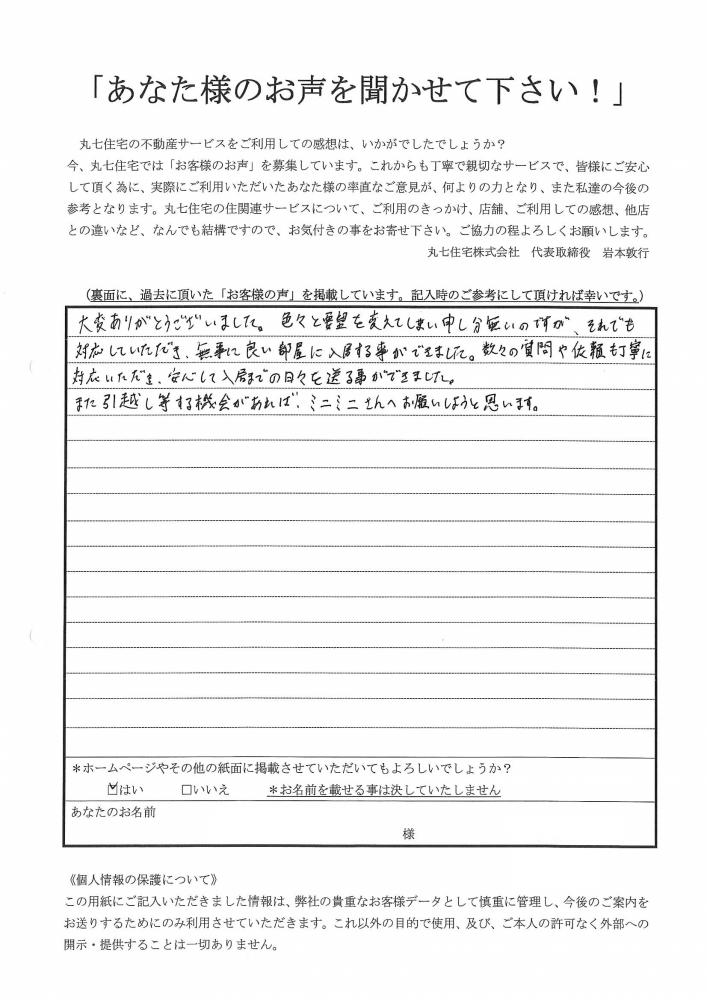 「あなた様のお声を聞かせて下さい！」
丸七住宅の不動産サービスをご利用しての感想は、いかがでしたでしょうか？
今、丸七住宅では「お客様のお声」を募集しています。これからも丁寧で親切なサービスで、皆様にご安心
して頂く為に、実際にご利用いただいたあなた様の率直なご意見が、何よりの力となり、また私達の今後の
参考となります。丸七住宅の住関連サービスについて、ご利用のきっかけ、店舗、ご利用しての感想、他店
との違いなど、なんでも結構ですので、お気付きの事をお寄せ下さい。ご協力の程よろしくお願いします。
丸七住宅株式会社　代表取締役　岩本敦行
（裏面に、過去に頂いた「お客様の声」を掲載しています。記入時のご参考にして頂ければ幸いです。）
大変ありがとうございました。色々と要望を変えてしまい申し分無いのですが、それでも
対応していただき、無事に良い部屋に入居する事ができました。数々の質問や依頼も丁寧に
対応いただき、安心して入居までの日々を送る事ができました。
また引越し等する機会があれば、ミニミニさんへお願いしようと思います。
＊ホームページやその他の紙面に掲載させていただいてもよろしいでしょうか？
☑はい　□いいえ　＊お名前を載せる事は決していたしません
あなたのお名前
様
《個人情報の保護について》
この用紙にご記入いただきました情報は、弊社の貴重なお客様データとして慎重に管理し、今後のご案内を
お送りするためにのみ利用させていただきます。これ以外の目的で使用、及び、ご本人の許可なく外部への
開示・提供することは一切ありません。